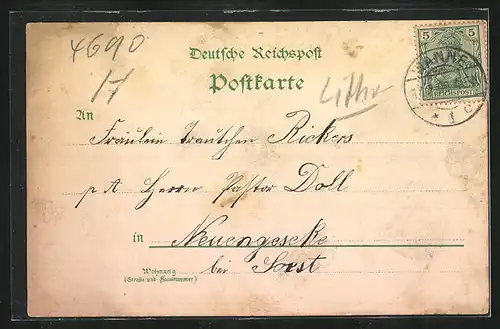 4690
17
Deutsche Reichspost
Postkarte
5 5
REICHSPOST
An
Fräulein Trautchen Rickers
p A Herrn Pastor Doll
in Neuengeseke
bei Soest
Wohnung
(Straße und Hausnummer)